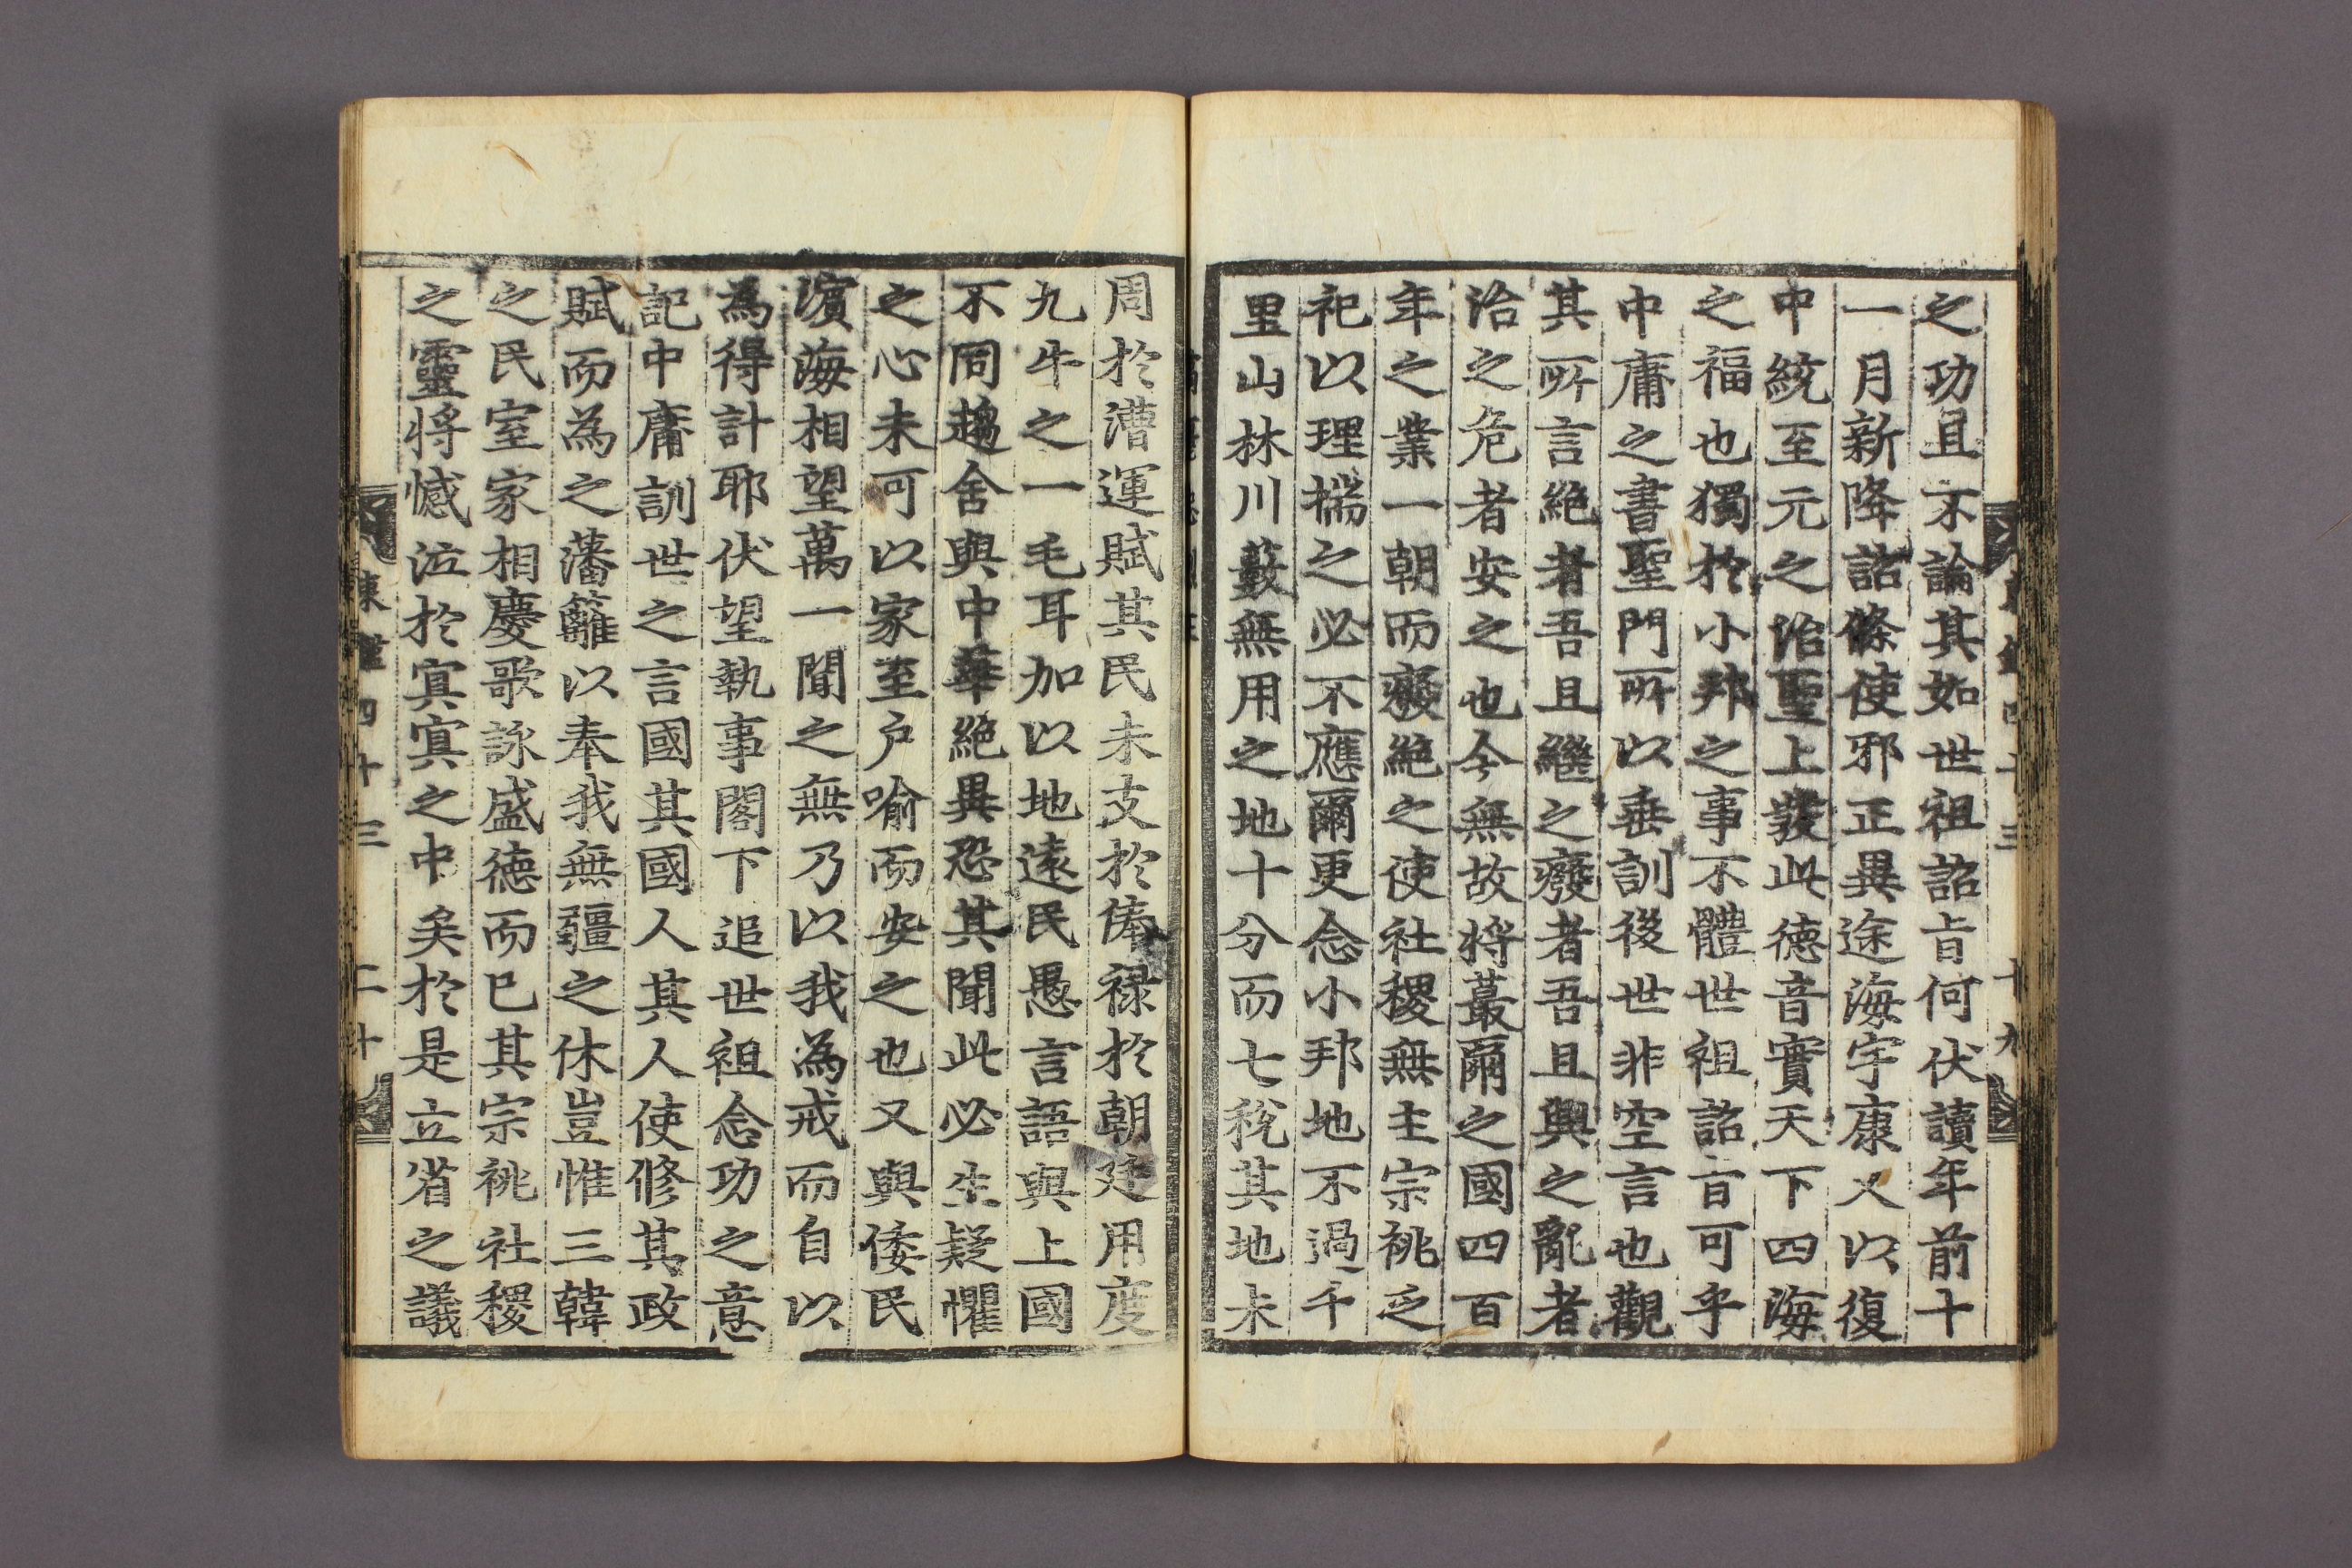 之功且不論其如世祖詔旨何伏讀年前十
一月新降詔條使邪正異途海宇康乂以復
中統至元之治聖上發此德音實天下四海
之福也獨於小邦之事不體世祖詔旨可乎
中庸之書聖門所以垂訓後世非空言也觀
其所言絶者吾且繼之廢者吾且興之亂者
治之危者安之也今無故將蕞爾之國四百
年之業一朝而廢絶之使社稷無主宗祧乏
祀以理揣之必不應爾更念小邦地不過千
里山林川藪無用之地十分而七稅其地未
周於漕運賦其民未支於俸祿於朝廷用度
九牛之一毛耳加以地遠民愚言語與上國
不同趨舍與中華絶異恐其聞此必生疑懼
之心未可以家至戶喻而安之也又與倭民
濱海相望萬一聞之無乃以我為戒而自以
為得計耶伏望執事閣下追世祖念功之意
記中庸訓世之言國其國人其人使修其政
賦而為之藩籬以奉我無疆之休豈惟三韓
之民室家相慶歌詠盛德而已其宗祧社稷
之靈將憾泣於冥冥之中矣於是立省之議
東鑑四十三 二十